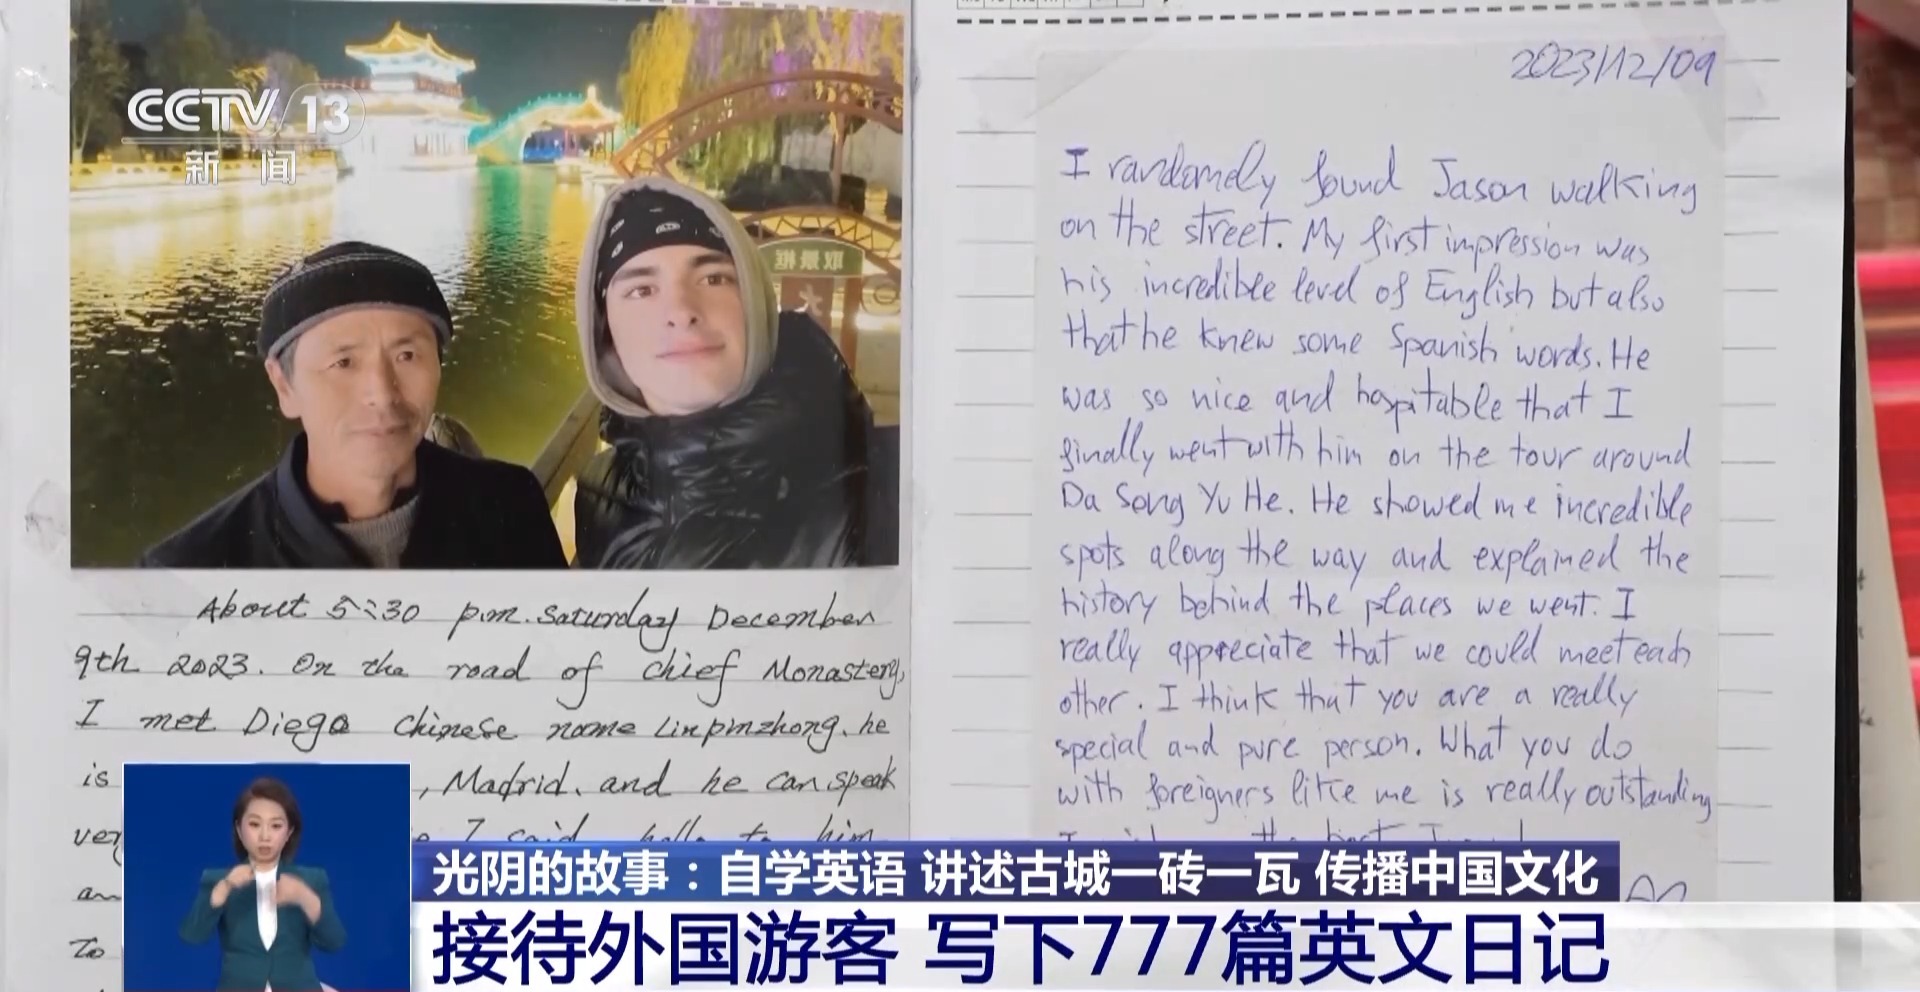 CCTV 13
新闻
取景框
About 5:30 p.m. Saturday December
9th 2023. On the road of chief Monastery,
I met Diego Chinese name Linpinzhong. he
is , Madrid. and he can speak
ver I said hello to him
an
To
2023/12/09
I randomely found Jason walking
on the street. My first impression was
his incredible level of English but also
that he knew some Spanish words. He
was so nice and hospitable that I
finally went with him on the tour around
Da Song Yu He. He showed me incredible
spots along the way and explained the
history behind the places we went. I
really appreciate that we could meet each
other. I think that you are a really
special and pure person. What you do
with foreigners like me is really outstanding
光阴的故事：自学英语 讲述古城一砖一瓦 传播中国文化
接待外国游客 写下777篇英文日记